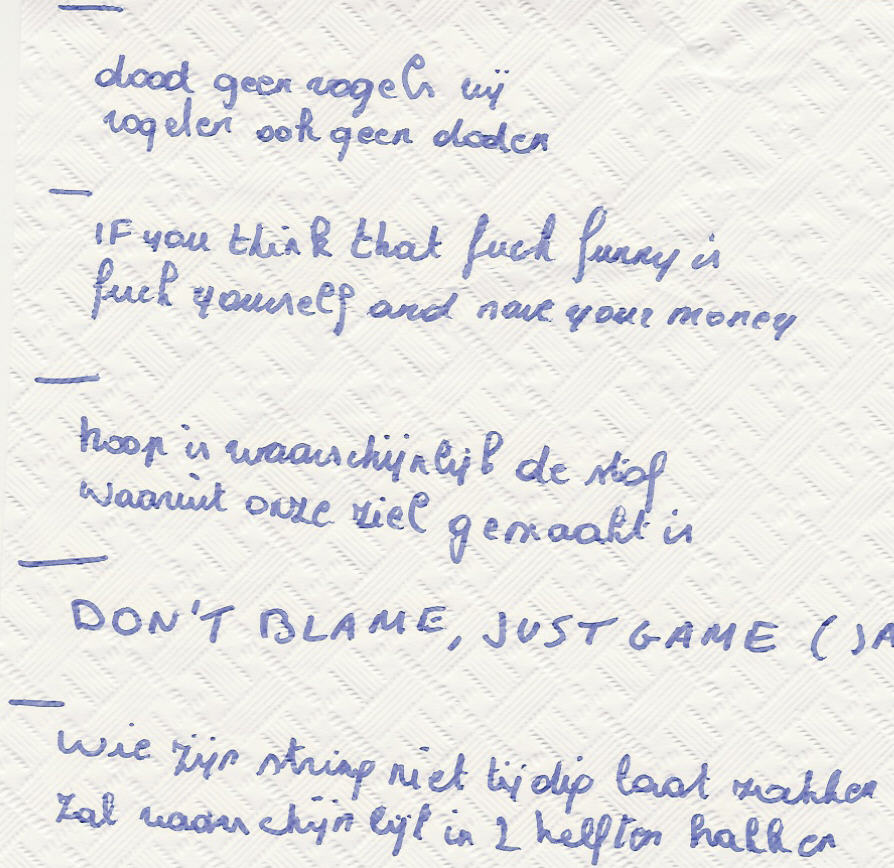 dood geen vogels wij
vogelen ook geen doden
IF you think that fuck funny is
fuck yourself and save your money
hoop is waarschijnlijk de stof
waaruit onze ziel gemaakt is
DON'T BLAME, JUST GAME (JA
wie zijn string niet tijdig laat zakken
zal waarschijnlijk in 2 helften hakken